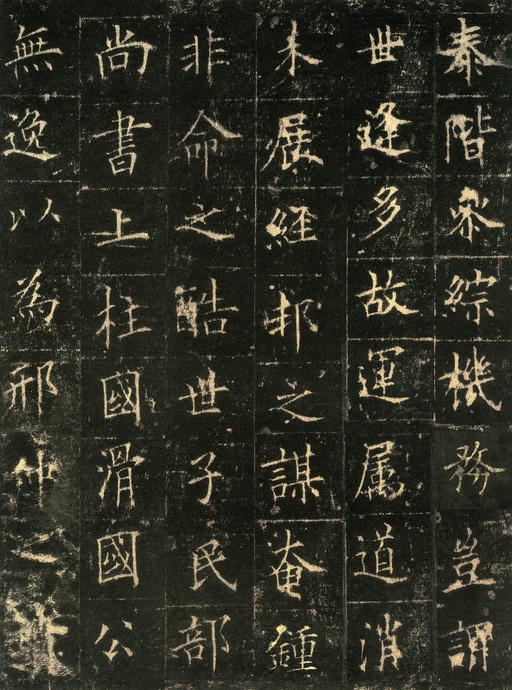 泰階永綜機務豈謂
世逢多故運属道消
未展經邦之謀奄鍾
非命之酷世子民部
尚書上柱國滑國公
無逸以為邢山之